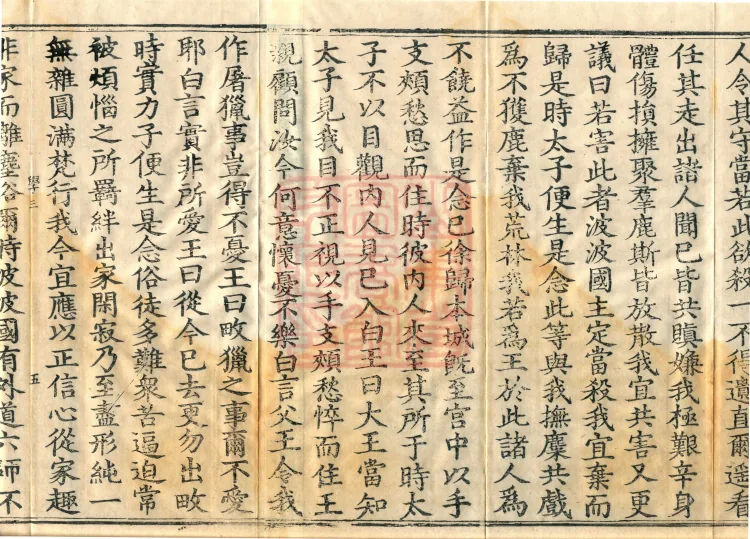 人令其守當若此欲殺一不得遺直爾遥看
任其走出諸人聞已皆共瞋嫌我極艱辛身
體傷損擁聚羣鹿斯皆放散我宜共害又更
議曰若害此者波波國主定當殺我宜棄而
歸是時太子便生是念此等與我撫麋共戲
爲不獲鹿棄我荒林我若爲王於此諸人爲
不饒益作是念已徐歸本城旣至宮中以手
支頰愁思而住時彼内人來至其所于時太
子不以目觀内人見已入白王曰大王當知
太子見我目不正視以手支頰愁悴而住王
親顧問汝今何意懷憂不樂白言父王令我
作屠獵事豈得不憂王曰畋獵之事爾不愛
耶白言實非所愛王曰從今已去更勿出畋
時實力子便生是念俗徒多難衆苦逼迫常
被煩惱之所羇絆出家閑寂乃至盡形純一
無雜圓滿梵行我今宜應以正信心從家趣
學三 五
非家而離塵俗爾時波波國有外道六師不